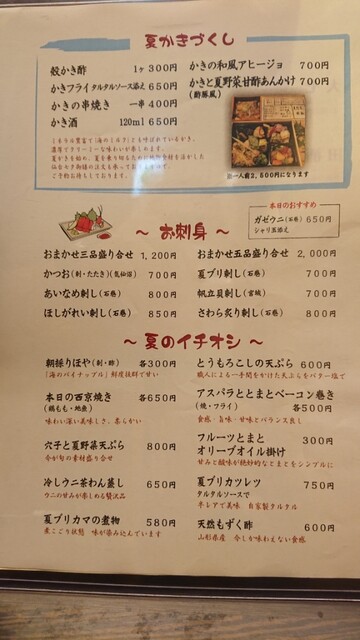 夏かきづくし
殻かき酢 1ヶ 300円
かきフライ タルタルソース添え 650円
かきの串焼き 一串 400円
かき酒 120ml 650円
かきの和風アヒージョ 700円
かきと夏野菜甘酢あんかけ 700円
(酢豚風)
ミネラル豊富で「海のミルク」とも呼ばれているかき。
濃厚でクリーミーな味わいが楽しめます。
ご予約お待ちしております。
お一人前2,500円になります
本日のおすすめ
ガゼウニ(石巻) 650円
シャリ玉添え
～ お刺身 ～
おまかせ三品盛り合せ 1,200円
かつお(刺・たたき)(気仙沼) 700円
あいなめ刺し(石巻) 800円
ほしがれい刺し(石巻) 850円
おまかせ五品盛り合せ 2,000円
夏ブリ刺し(石巻) 700円
帆立貝刺し(宮城) 700円
さわら炙り刺し(石巻) 800円
～ 夏のイチオシ ～
朝採りほや(刺・酢) 各300円
「海のパイナップル」鮮度抜群で甘い
本日の西京焼き 各650円
(鶏もも・地魚)
味わい深い美味しさ、柔らかい
穴子と夏野菜天ぷら 800円
今が旬の素材盛り合せ
冷しウニ茶わん蒸し 650円
ウニの甘みが楽しめる贅沢品
夏ブリカマの煮物 580円
煮こごり状態 味が染み込んでいます
とうもろこしの天ぷら 600円
職人による一手間をかけた天ぷらをバター塩で
アスパラととまとベーコン巻き
(焼・フライ) 各500円
食感・旨味・甘味とバランス良し
フルーツとまと 300円
オリーブオイル掛け
甘みと酸味が絶妙的なとまとをシンプルに
夏ブリカツレツ 750円
タルタルソースで
半レアで美味 自家製タルタル
天然もずく酢 600円
山形県産 今しか味わえない食感